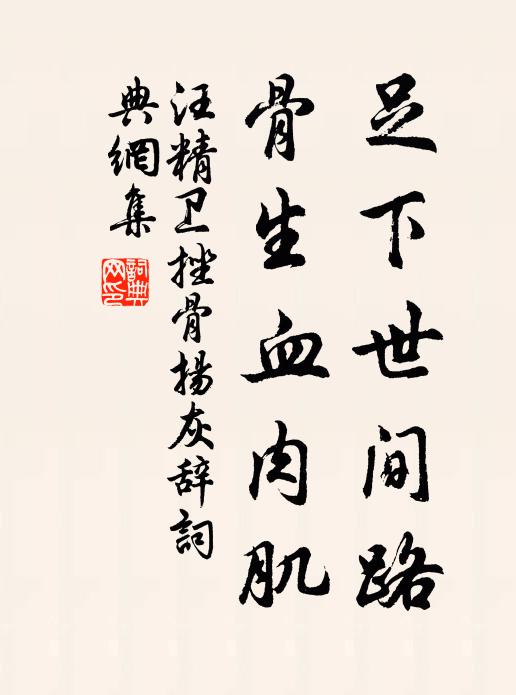 足下世间路
骨生血肉肌
汪精卫挫骨揚灰辞詞
典網集
詞典
网印